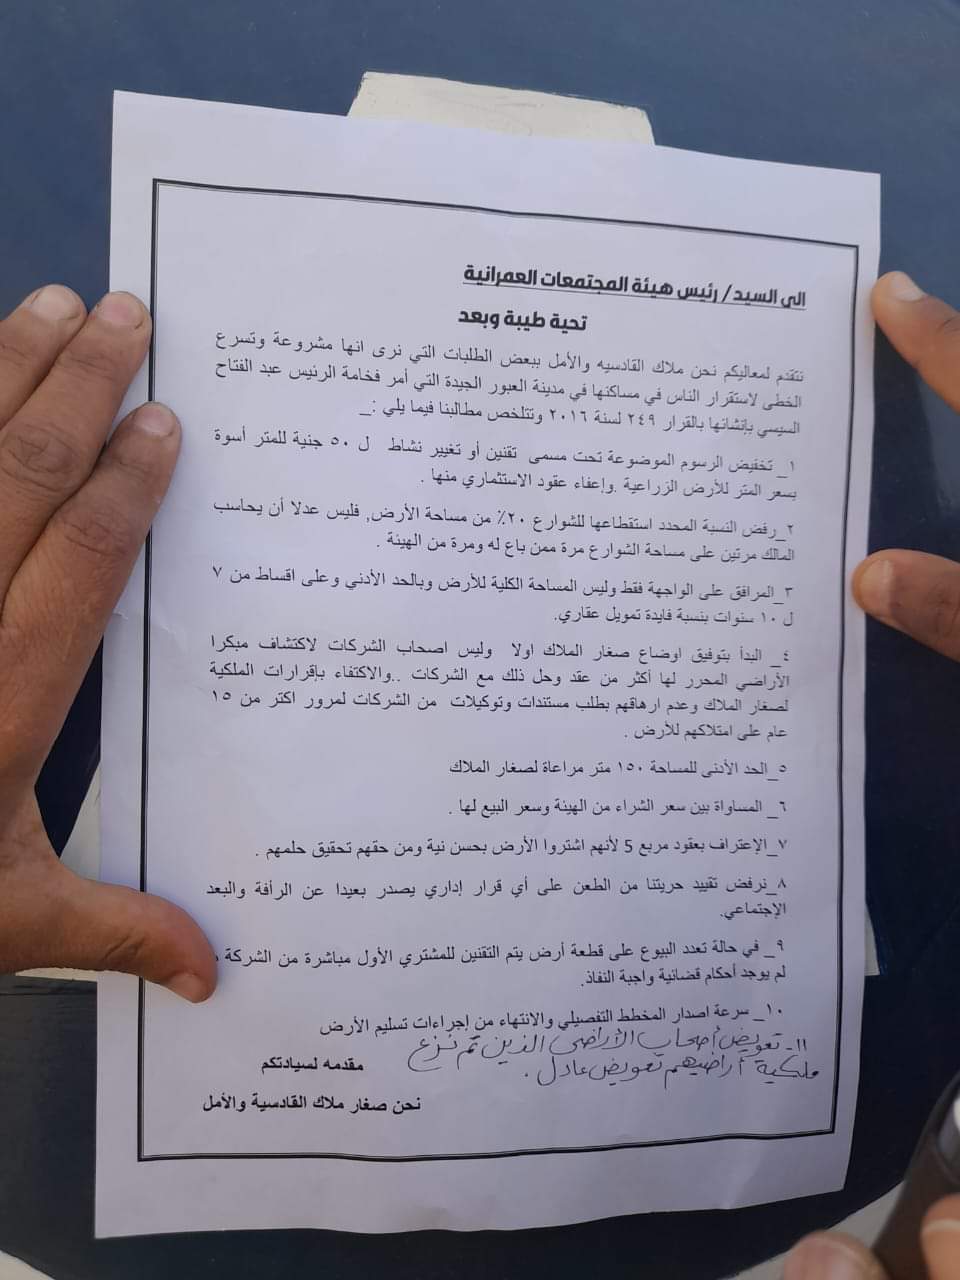 الى السيد/ رئيس هيئة المجتمعات العمرانية
تحية طيبة وبعد
نتقدم لمعاليكم نحن ملاك القادسيه والأمل ببعض الطلبات التي نرى انها مشروعة وتسرع
الخطى لاستقرار الناس في مساكنها في مدينة العبور الجيدة التي أمر فخامة الرئيس عبد الفتاح
السيسي بإنشانها بالقرار ٢٤٩ لسنة ٢٠١٦ وتتلخص مطالبنا فيما يلي :_
١_ تخفيض الرسوم الموضوعة تحت مسمى تقنين أو تغيير نشاط ل ٥٠ جنية للمتر أسوة
بسعر المتر للأرض الزراعية .وإعفاء عقود الاستثماري منها .
٢_رفض النسبة المحدد استقطاعها للشوارع ٢٠٪ من مساحة الأرض, فليس عدلا أن يحاسب
المالك مرتين على مساحة الشوارع مرة ممن باع له ومرة من الهيئة .
٣_المرافق على الواجهة فقط وليس المساحة الكلية للأرض وبالحد الأدني وعلى اقساط من ٧
ل ١٠ سنوات بنسبة فايدة تمويل عقاري.
٤_ البدأ بتوفيق اوضاع صغار الملاك اولا وليس اصحاب الشركات لاكتشاف مبكرا
الأراضي المحرر لها أكثر من عقد وحل ذلك مع الشركات ..والاكتفاء بإقرارات الملكية
لصغار الملاك وعدم ارهاقهم بطلب مستندات وتوكيلات من الشركات لمرور اكتر من ١٥
عام على امتلاكهم للأرض .
٥_الحد الأدنى للمساحة ١٥٠ متر مراعاة لصغار الملاك
٦_ المساواة بين سعر الشراء من الهيئة وسعر البيع لها .
٧_الإعتراف بعقود مربع 5 لأنهم اشتروا الأرض بحسن نية ومن حقهم تحقيق حلمهم .
٨_نرفض تقييد حريتنا من الطعن على أي قرار إداري يصدر بعيدا عن الرأفة والبعد
الإجتماعي.
٩_ في حالة تعدد البيوع على قطعة أرض يتم التقنين للمشتري الأول مباشرة من الشركة
لم يوجد أحكام قضائية واجبة النفاذ.
١٠_ سرعة اصدار المخطط التفصيلي والانتهاء من إجراءات تسليم الأرض
١١- تعويض أصحاب الأراضى الذين تم نزع
ملكية أراضيهم تعويض عادل .
مقدمه لسيادتكم
نحن صغار ملاك القادسية والأمل